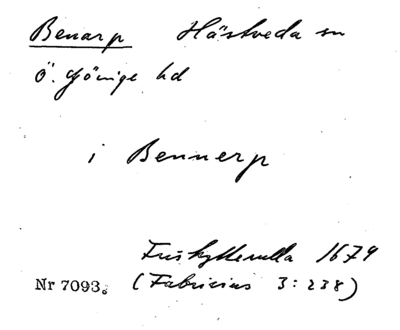 Benarp Hästveda sn
Ö. Göinge hd
i Bennerp
Friskytterulla 1679
Nr 7093. (Fabricius 3:238)